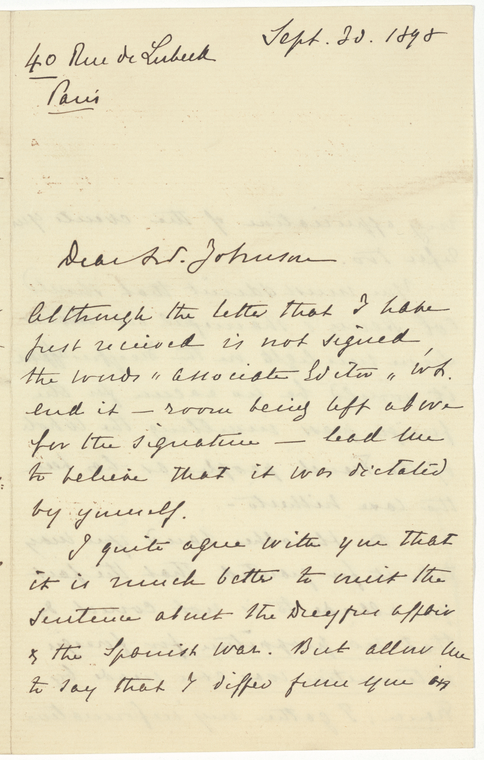 Sept. 30. 1898
40 Rue de Lubeck
Paris
Dear Mr. Johnson
Although the letter that I have
just received is not signed,
the words "Associate Editor" wh.
end it — room being left above
for the signature — lead me
to believe that it was dictated
by yourself.
I quite agree with you that
it is much better to omit the
sentence about the Dreyfus affair
& the Spanish war. But allow me
to say that I differ from you